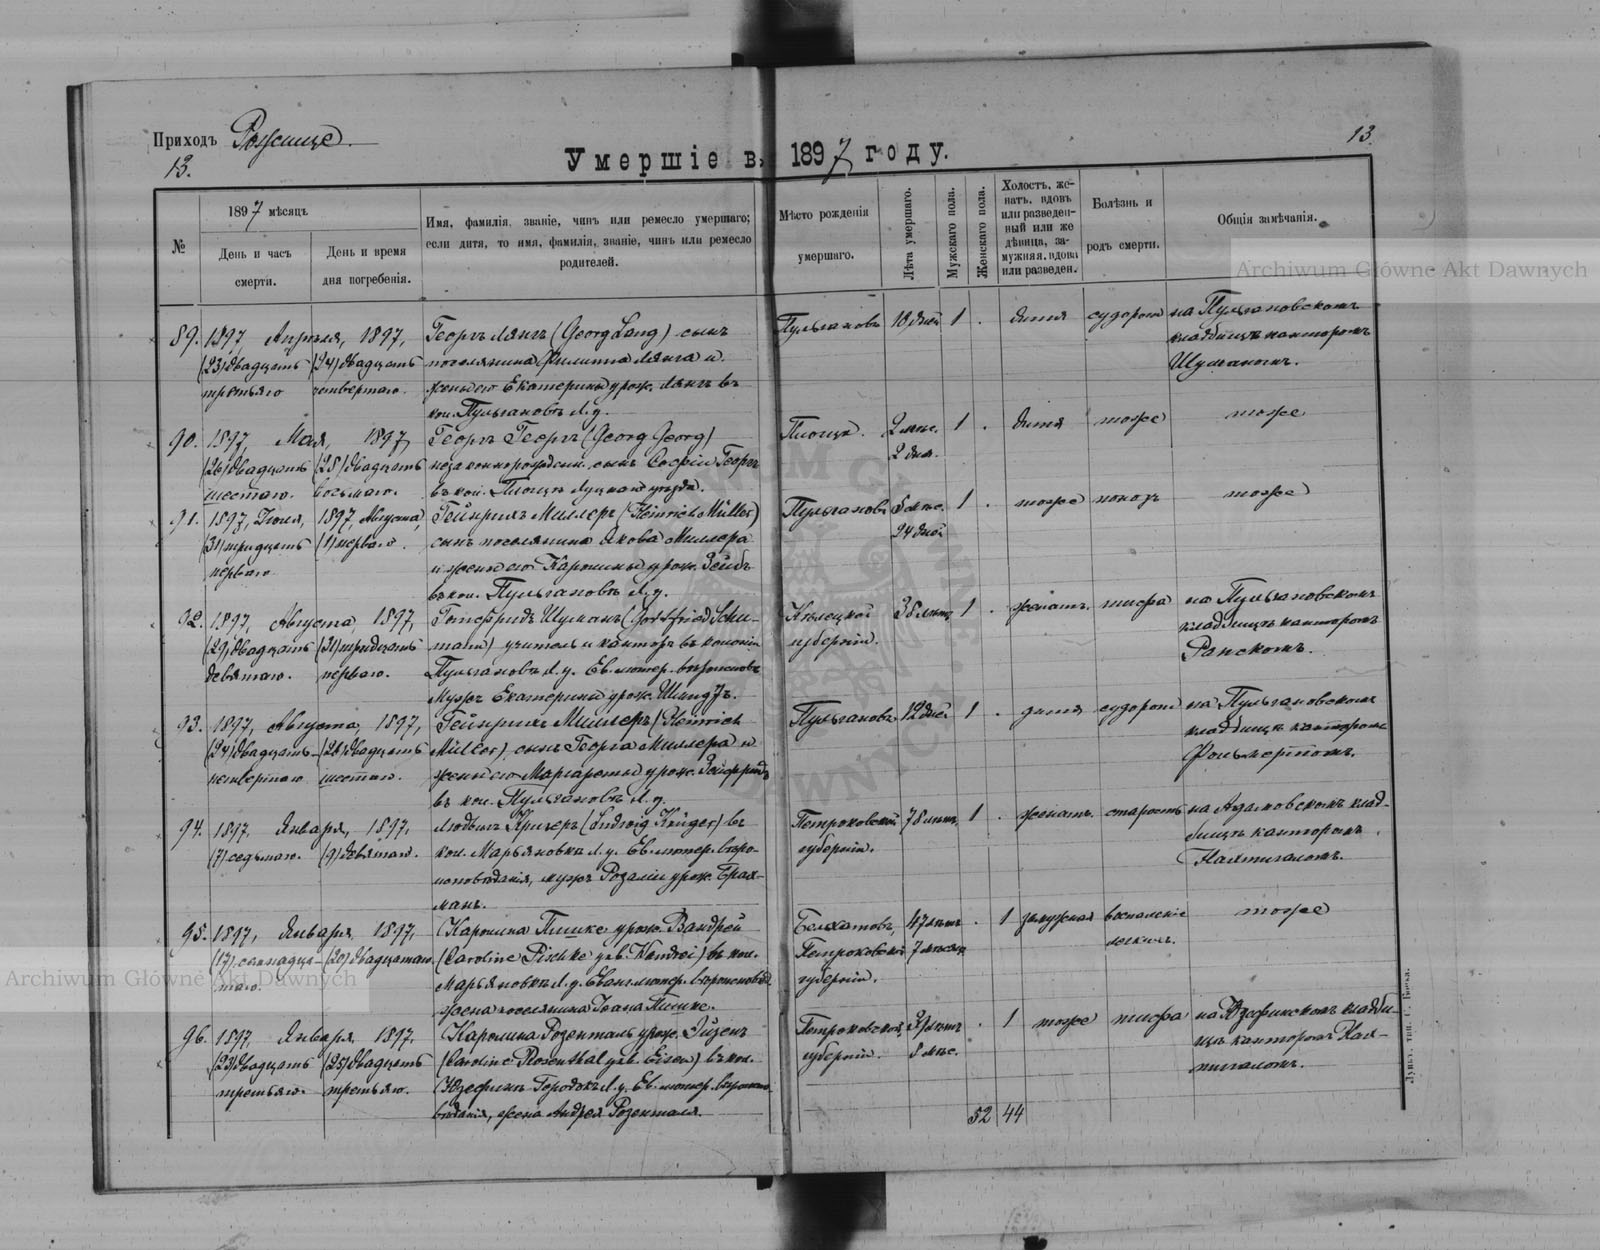 Приходъ Рожище.
13.
13.
Умершіе въ 1897 году.
№
1897 мѣсяцъ
День и часъ
смерти.
День и время
дня погребенія.
Имя, фамилія, званіе, чинъ или ремесло умершаго;
если дитя, то имя, фамилія, званіе, чинъ или ремесло
родителей.
Мѣсто рожденія
умершаго.
Лѣта умершаго.
Мужскаго пола.
Женскаго пола.
Холостъ, же-
натъ, вдовъ
или разведен-
ный или же
дѣвица, за-
мужняя, вдова
или разведен.
Болѣзнь и
родъ смерти.
Общія замѣчанія.
Archiwum Główne Akt Dawnych
89. 1897, Апрѣля, 1897,
(23) двадцать (24) двадцать
третьяго четвертаго.
Георгъ Лянгъ (Georg Lang) сынъ
поселянина Филиппа Лянга и
жены его Екатерины урож. Лянгъ въ
кол. Пульгановъ Л. у.
Пульгановъ 18 дней 1 . дитя судороги
на Пульгановскомъ
кладбищѣ канторомъ
Шуманомъ.
90. 1897, Мая, 1897,
(26) двадцать (28) двадцать
шестаго. восьмаго.
Георгъ Георгъ (Georg Georg)
незаконнорожден. сынъ Софіи Георгъ
въ кол. Луцкаго уѣзда.
2 мѣс.
2 дня.
1 . дитя тоже тоже
91. 1897, Іюля, 1897, Августа,
(31) тридцать (1) перваго.
перваго
Гейнрихъ Миллеръ (Heinrich Müller)
сынъ поселянина Якова Миллера
и жены его Каролины урож. Зейбъ
въ кол. Пульгановъ Л. у.
Пульгановъ 5 мѣс.
24 дней
1 . тоже тоже
92. 1897, Августа, 1897,
(29) двадцать (31) тридцать
девятаго. перваго.
Готфридъ Шуманъ (Gottfried Schu-
mann) учитель и канторъ въ колоніи
Пульгановъ Л. у. Ев. лютер. вѣроисповѣ.
Мужъ Екатерины урож. Шмидтъ.
Кѣлецкой
губерніи.
1 . женатъ. тифа
на Пульгановскомъ
кладбищѣ канторомъ
93. 1897, Августа, 1897,
(24) двадцать (26) двадцать
четвертаго шестаго.
Гейнрихъ Миллеръ (Heinrich
Müller) сынъ Георга Миллера и
жены его Маргареты урож. Зейфридъ
въ кол. Пульгановъ Л. у.
Пульгановъ 12 дней 1 . дитя судороги
на Пульгановскомъ
кладбищѣ канторомъ
94. 1897, Января, 1897,
(7) седьмаго. (9) девятаго.
Людвигъ Кригеръ (Ludwig Krüger) въ
кол. Марьяновкѣ Л. у. Ев. лютер. вѣро-
исповѣданія, мужъ Розаліи урож. Брах-
манъ.
Петроковской
губерніи.
78 лѣтъ 1 . женатъ. старость
на Адамовскомъ клад-
бищѣ канторомъ
95. 1897, Января, 1897,
(17) семнадца- (20) двадцатаго.
таго.
Каролина Пишке урож. Вандрей
(Caroline Pischke geb. Wandrei) въ кол.
Марьяновкѣ Л. у. Еванг. лютер. вѣроисповѣд.
жена поселянина Іоана Пишке.
Белхатовъ,
Петроковской
губерніи.
47 лѣтъ
7 мѣсяц.
. 1 замужняя воспаленіе
легкихъ.
тоже
96. 1897, Января, 1897,
(23) двадцать (25) двадцать
третьяго. третьяго.
Каролина Розенталь урож. Эйзенъ
(Caroline Rosenthal geb. Eisen) въ кол.
Юзефинъ Городокъ Л. у. Ев. лютер. вѣроисп
вѣданія, жена Андрея Розенталя.
Петроковской
губерніи.
8 мѣс.
. 1 тоже тифа
на Юзефинскомъ кладби-
щѣ канторомъ
52 44
Archiwum Główne Akt Dawnych